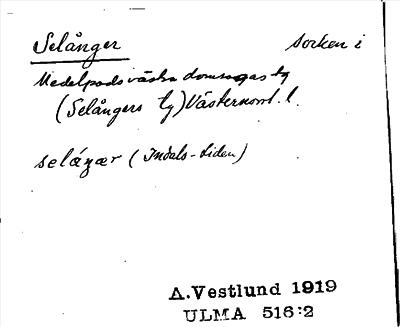 Selånger socken i
Medelpads västra domsagas tg
(Selångers tg) Västernorrl. l.
seláŋær (Indals-Liden)
A.Vestlund 1919
ULMA 516:2